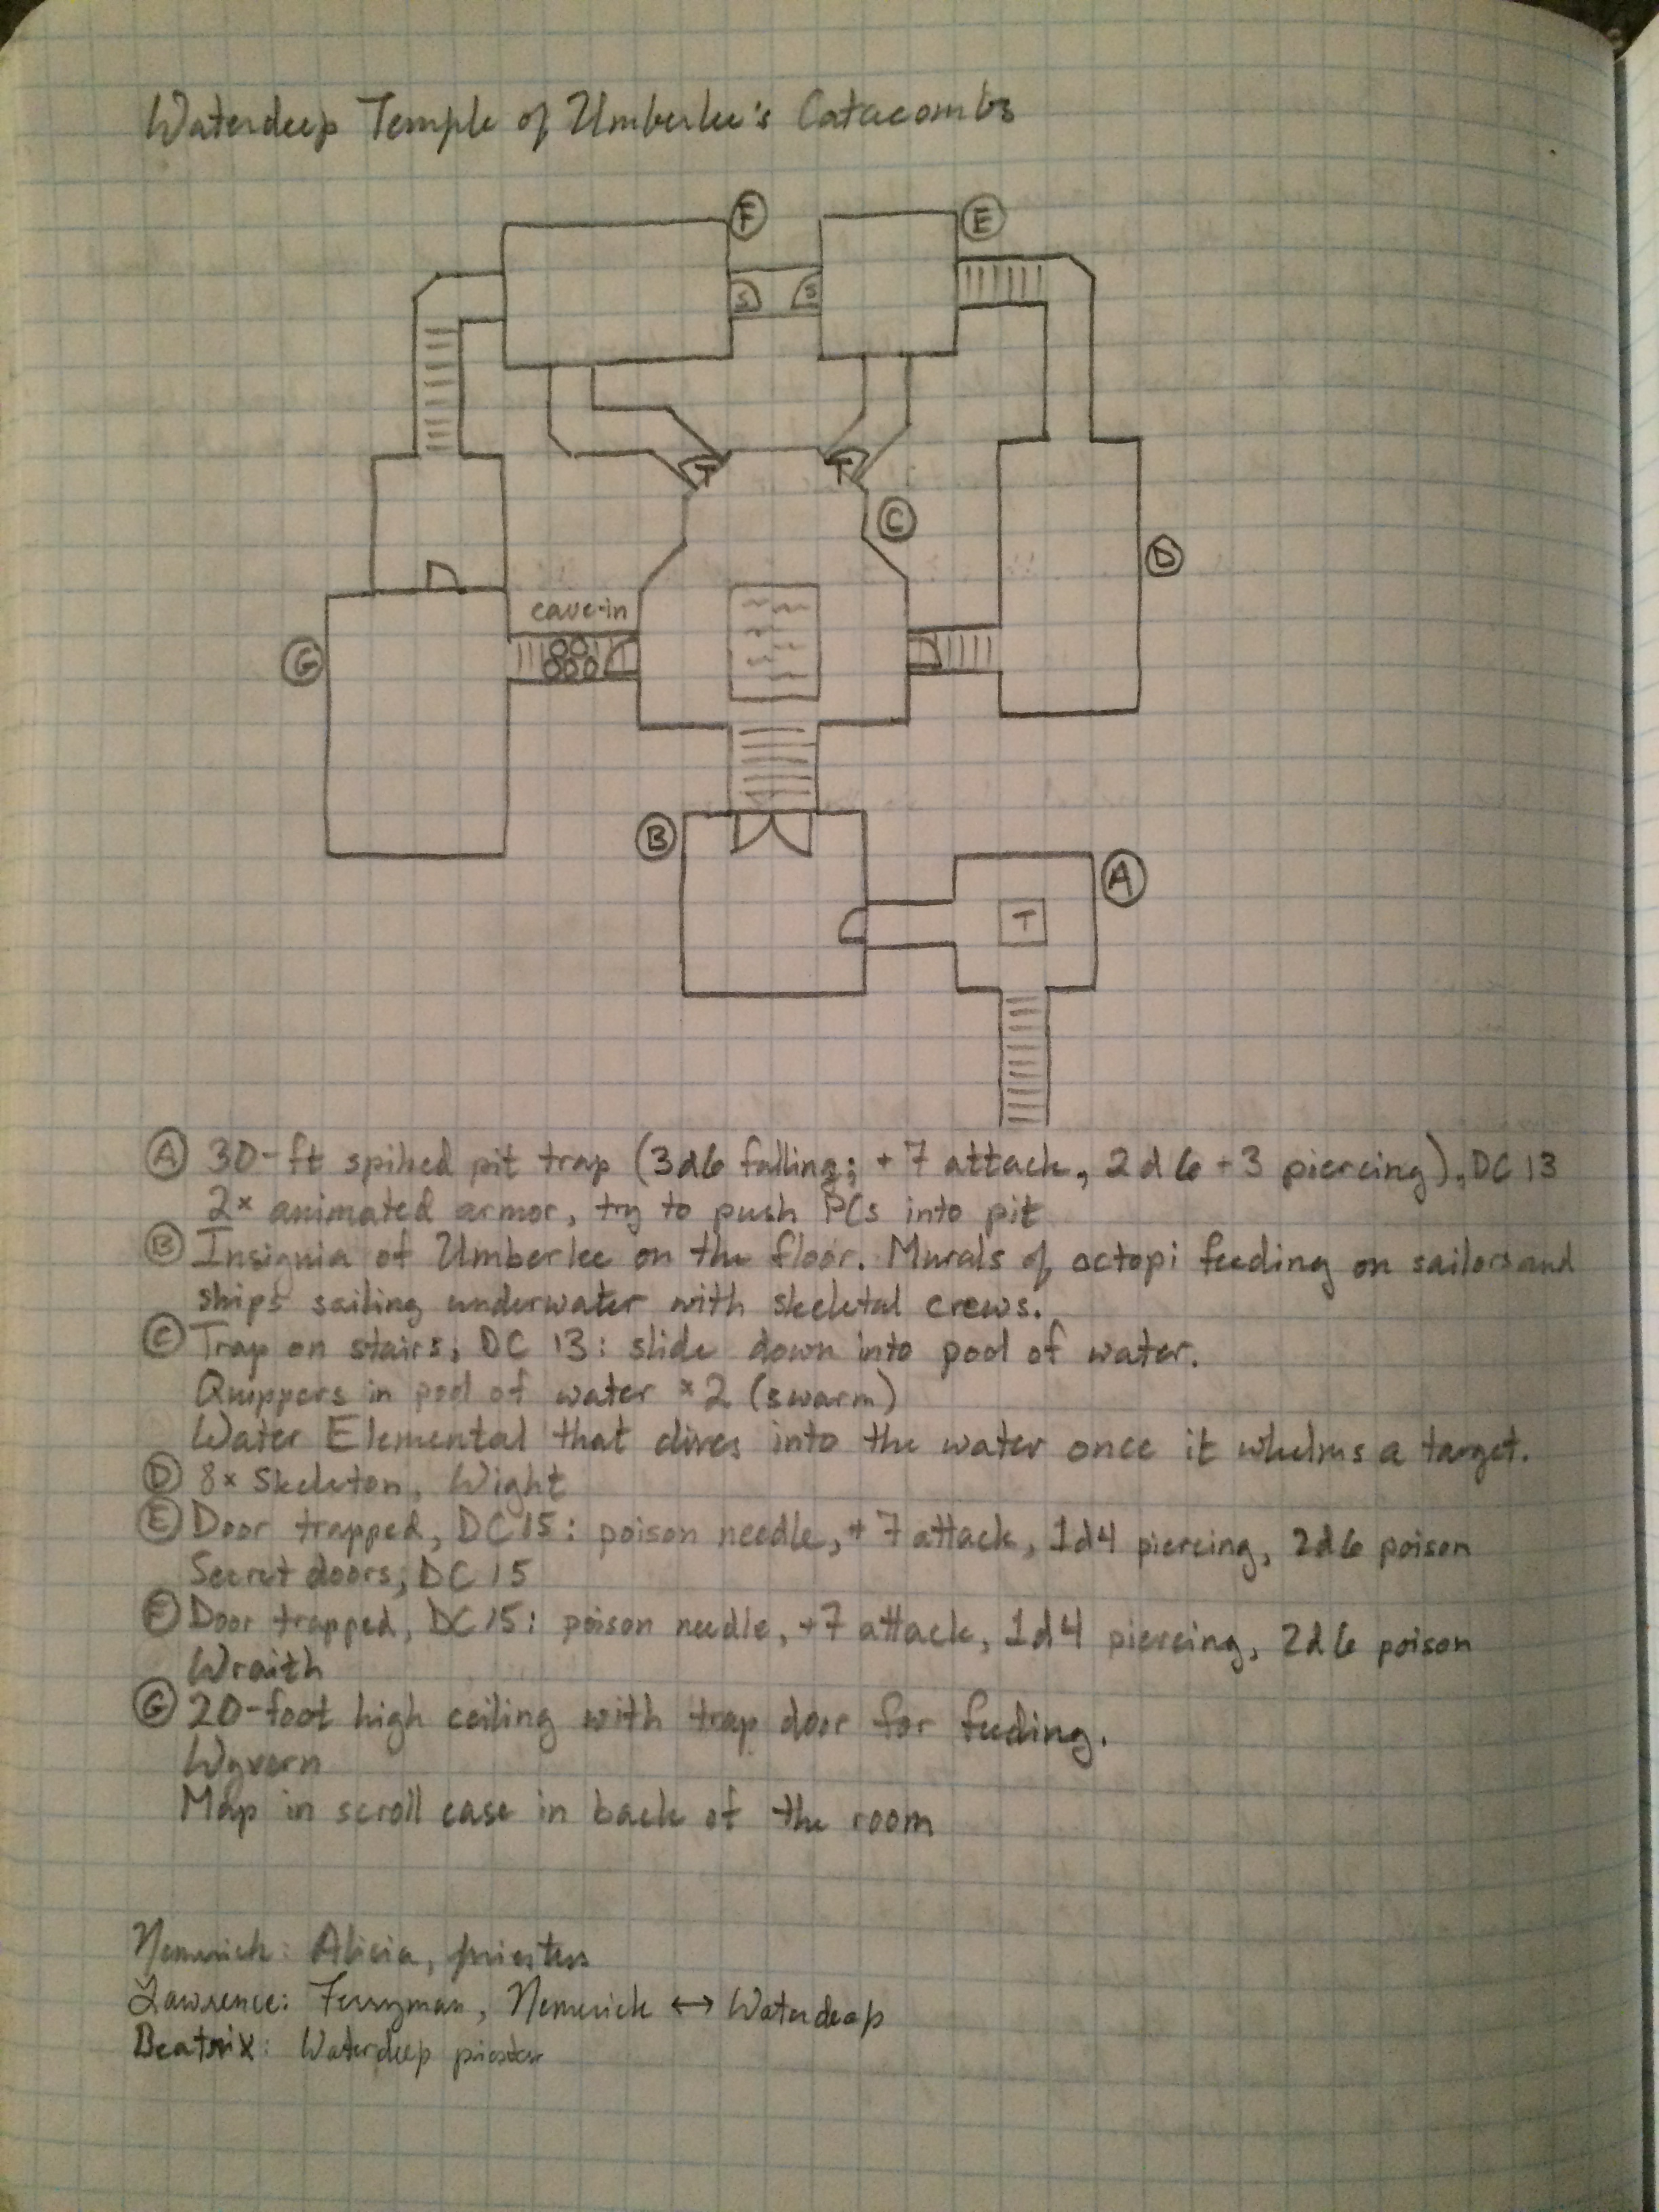 Waterdeep Temple of Umberlee's Catacombs
F
E
S S
T T
C
D
cave-in
G
B
A
T
A 30-ft spiked pit trap (3d6 falling; +7 attack, 2d6+3 piercing), DC 13
2x animated armor, try to push PCs into pit
B Insignia of Umberlee on the floor. Murals of octopi feeding on sailors and
ships sailing underwater with skeletal crews.
C Trap on stairs, DC 13: slide down into pool of water.
Quippers in pool of water x2 (swarm)
Water Elemental that dives into the water once it whelms a target.
D 8x Skeleton, Wight
E Door trapped, DC 15: poison needle, +7 attack, 1d4 piercing, 2d6 poison
Secret doors, DC 15
F Door trapped, DC 15: poison needle, +7 attack, 1d4 piercing, 2d6 poison
Wraith
G 20-foot high ceiling with trap door for feeding.
Wyvern
Map in scroll case in back of the room
Nemerick: Alicia, priestess
Lawrence: Ferryman, Nemerick ↔ Waterdeep
Beatrix: Waterdeep